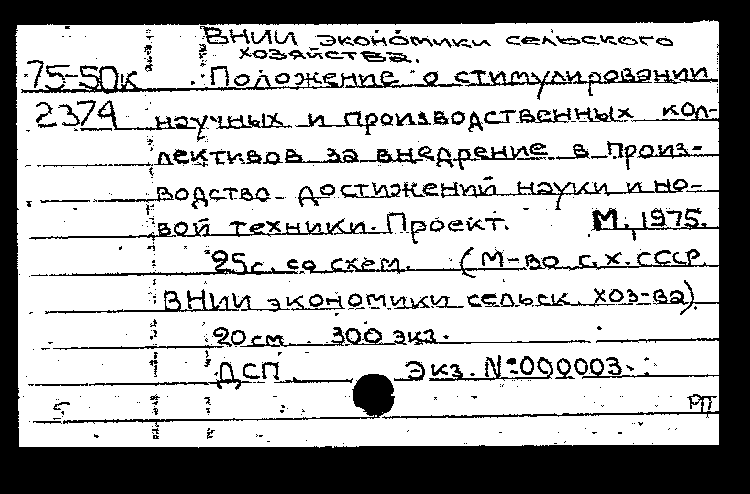 ВНИИ экономики сельского
хозяйства.
75-50к Положение о стимулировании
2374 научных и производственных кол-
лективов за внедрение в произ-
водство достижений науки и но-
вой техники. Проект. М., 1975.
25с. со схем. (М-во с.х. СССР
ВНИИ экономики сельск. хоз-ва)
20 см 300 экз.
ДСП Экз. №000003.
5 РП